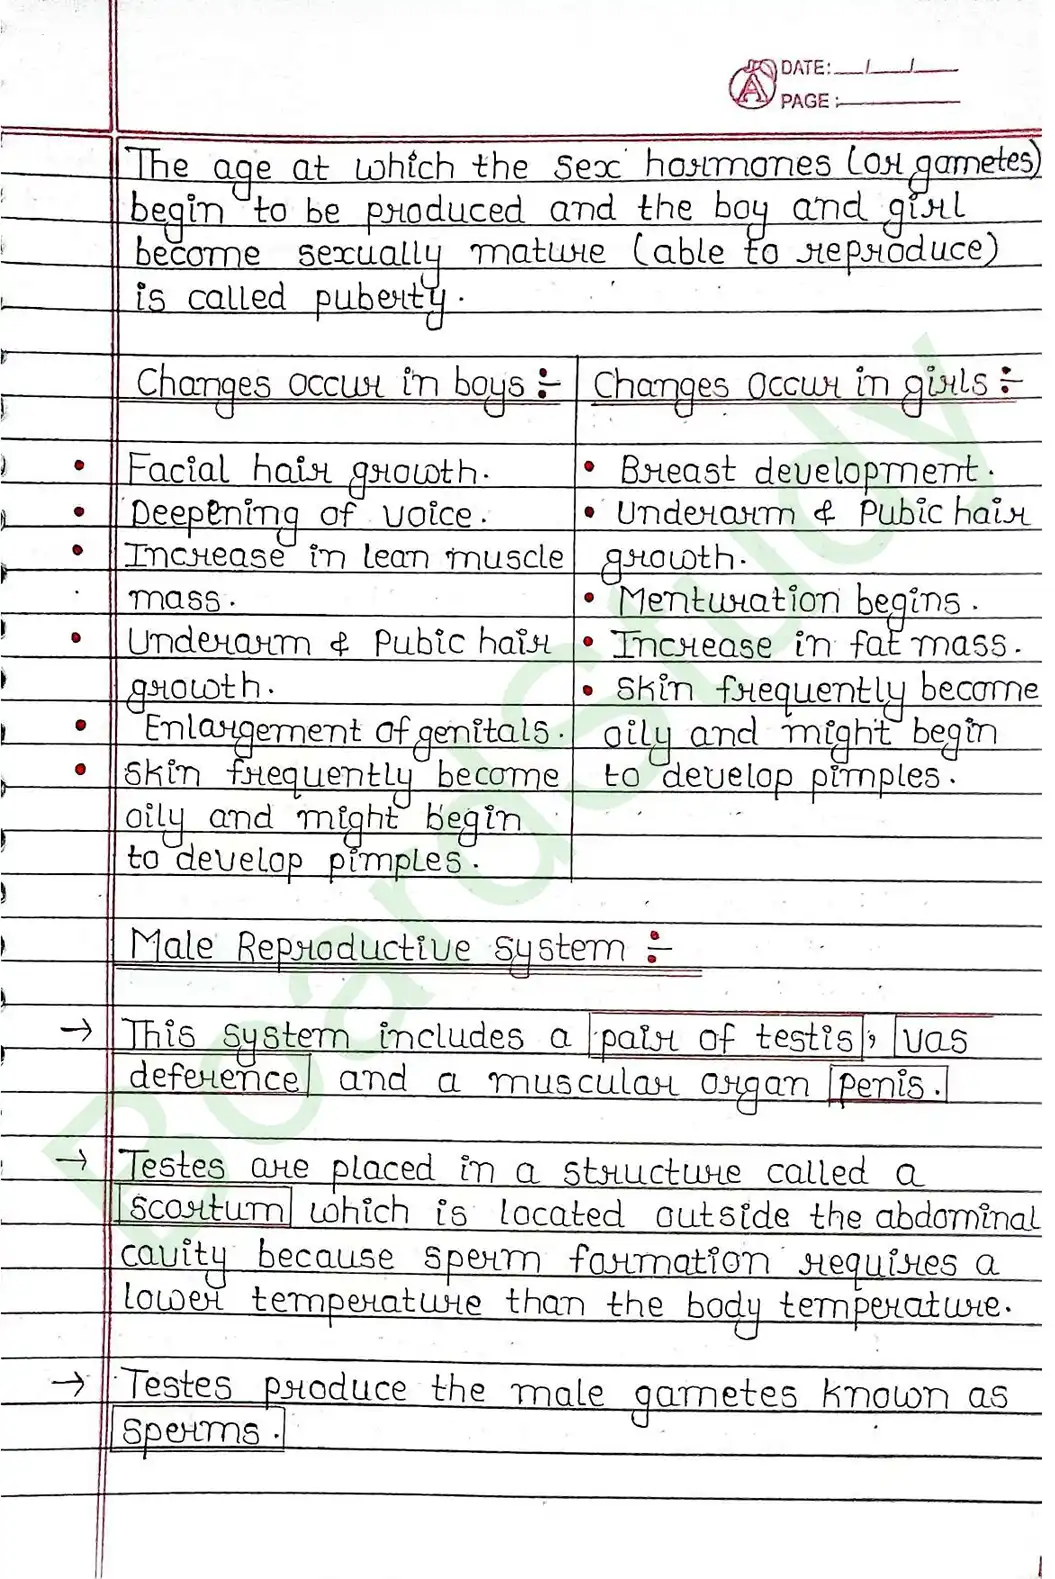 DATE: __/__/__
PAGE:
The age at which the sex hormones (or gametes)
begin to be produced and the boy and girl
become sexually mature (able to reproduce)
is called puberty.
Changes occur in boys :-
Facial hair growth.
Deepening of voice.
Increase in lean muscle
mass.
Underarm & Pubic hair
growth.
Enlargement of genitals.
Skin frequently become
oily and might begin
to develop pimples.
Changes occur in girls :-
Breast development.
Underarm & Pubic hair
growth.
Menturation begins.
Increase in fat mass.
Skin frequently become
oily and might begin
to develop pimples.
Male Reproductive system :-
→ This system includes a pair of testis, vas
deference and a muscular organ penis.
→ Testes are placed in a structure called a
scortum which is located outside the abdominal
cavity because sperm formation requires a
lower temperature than the body temperature.
→ Testes produce the male gametes known as
sperms.
BoardStudy